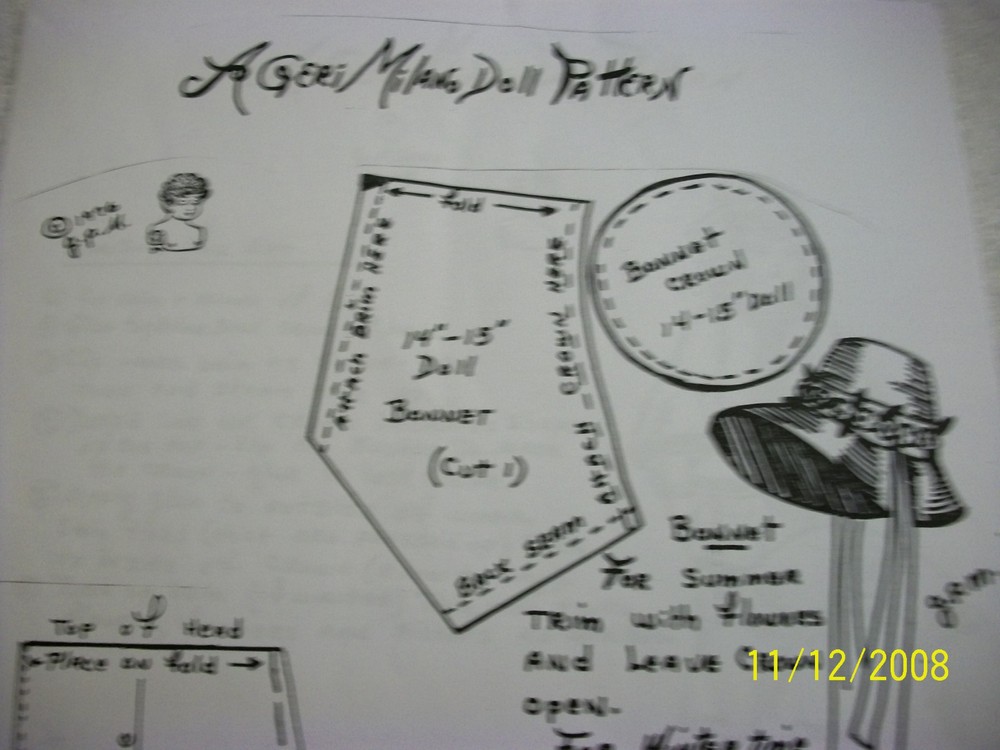 A Geri Milano Doll Pattern
©
g.g.m.
fold
Attach Brim Here
Attach Crown Here
14"-15"
Doll
Bonnet
(Cut 1)
Back Seam
Bonnet
Crown
14-15" Doll
Bonnet
For Summer
Trim with flowers
And Leave Crown
open.
For Winter trim
g.g.m.
Top of Head
Place on fold
11/12/2008